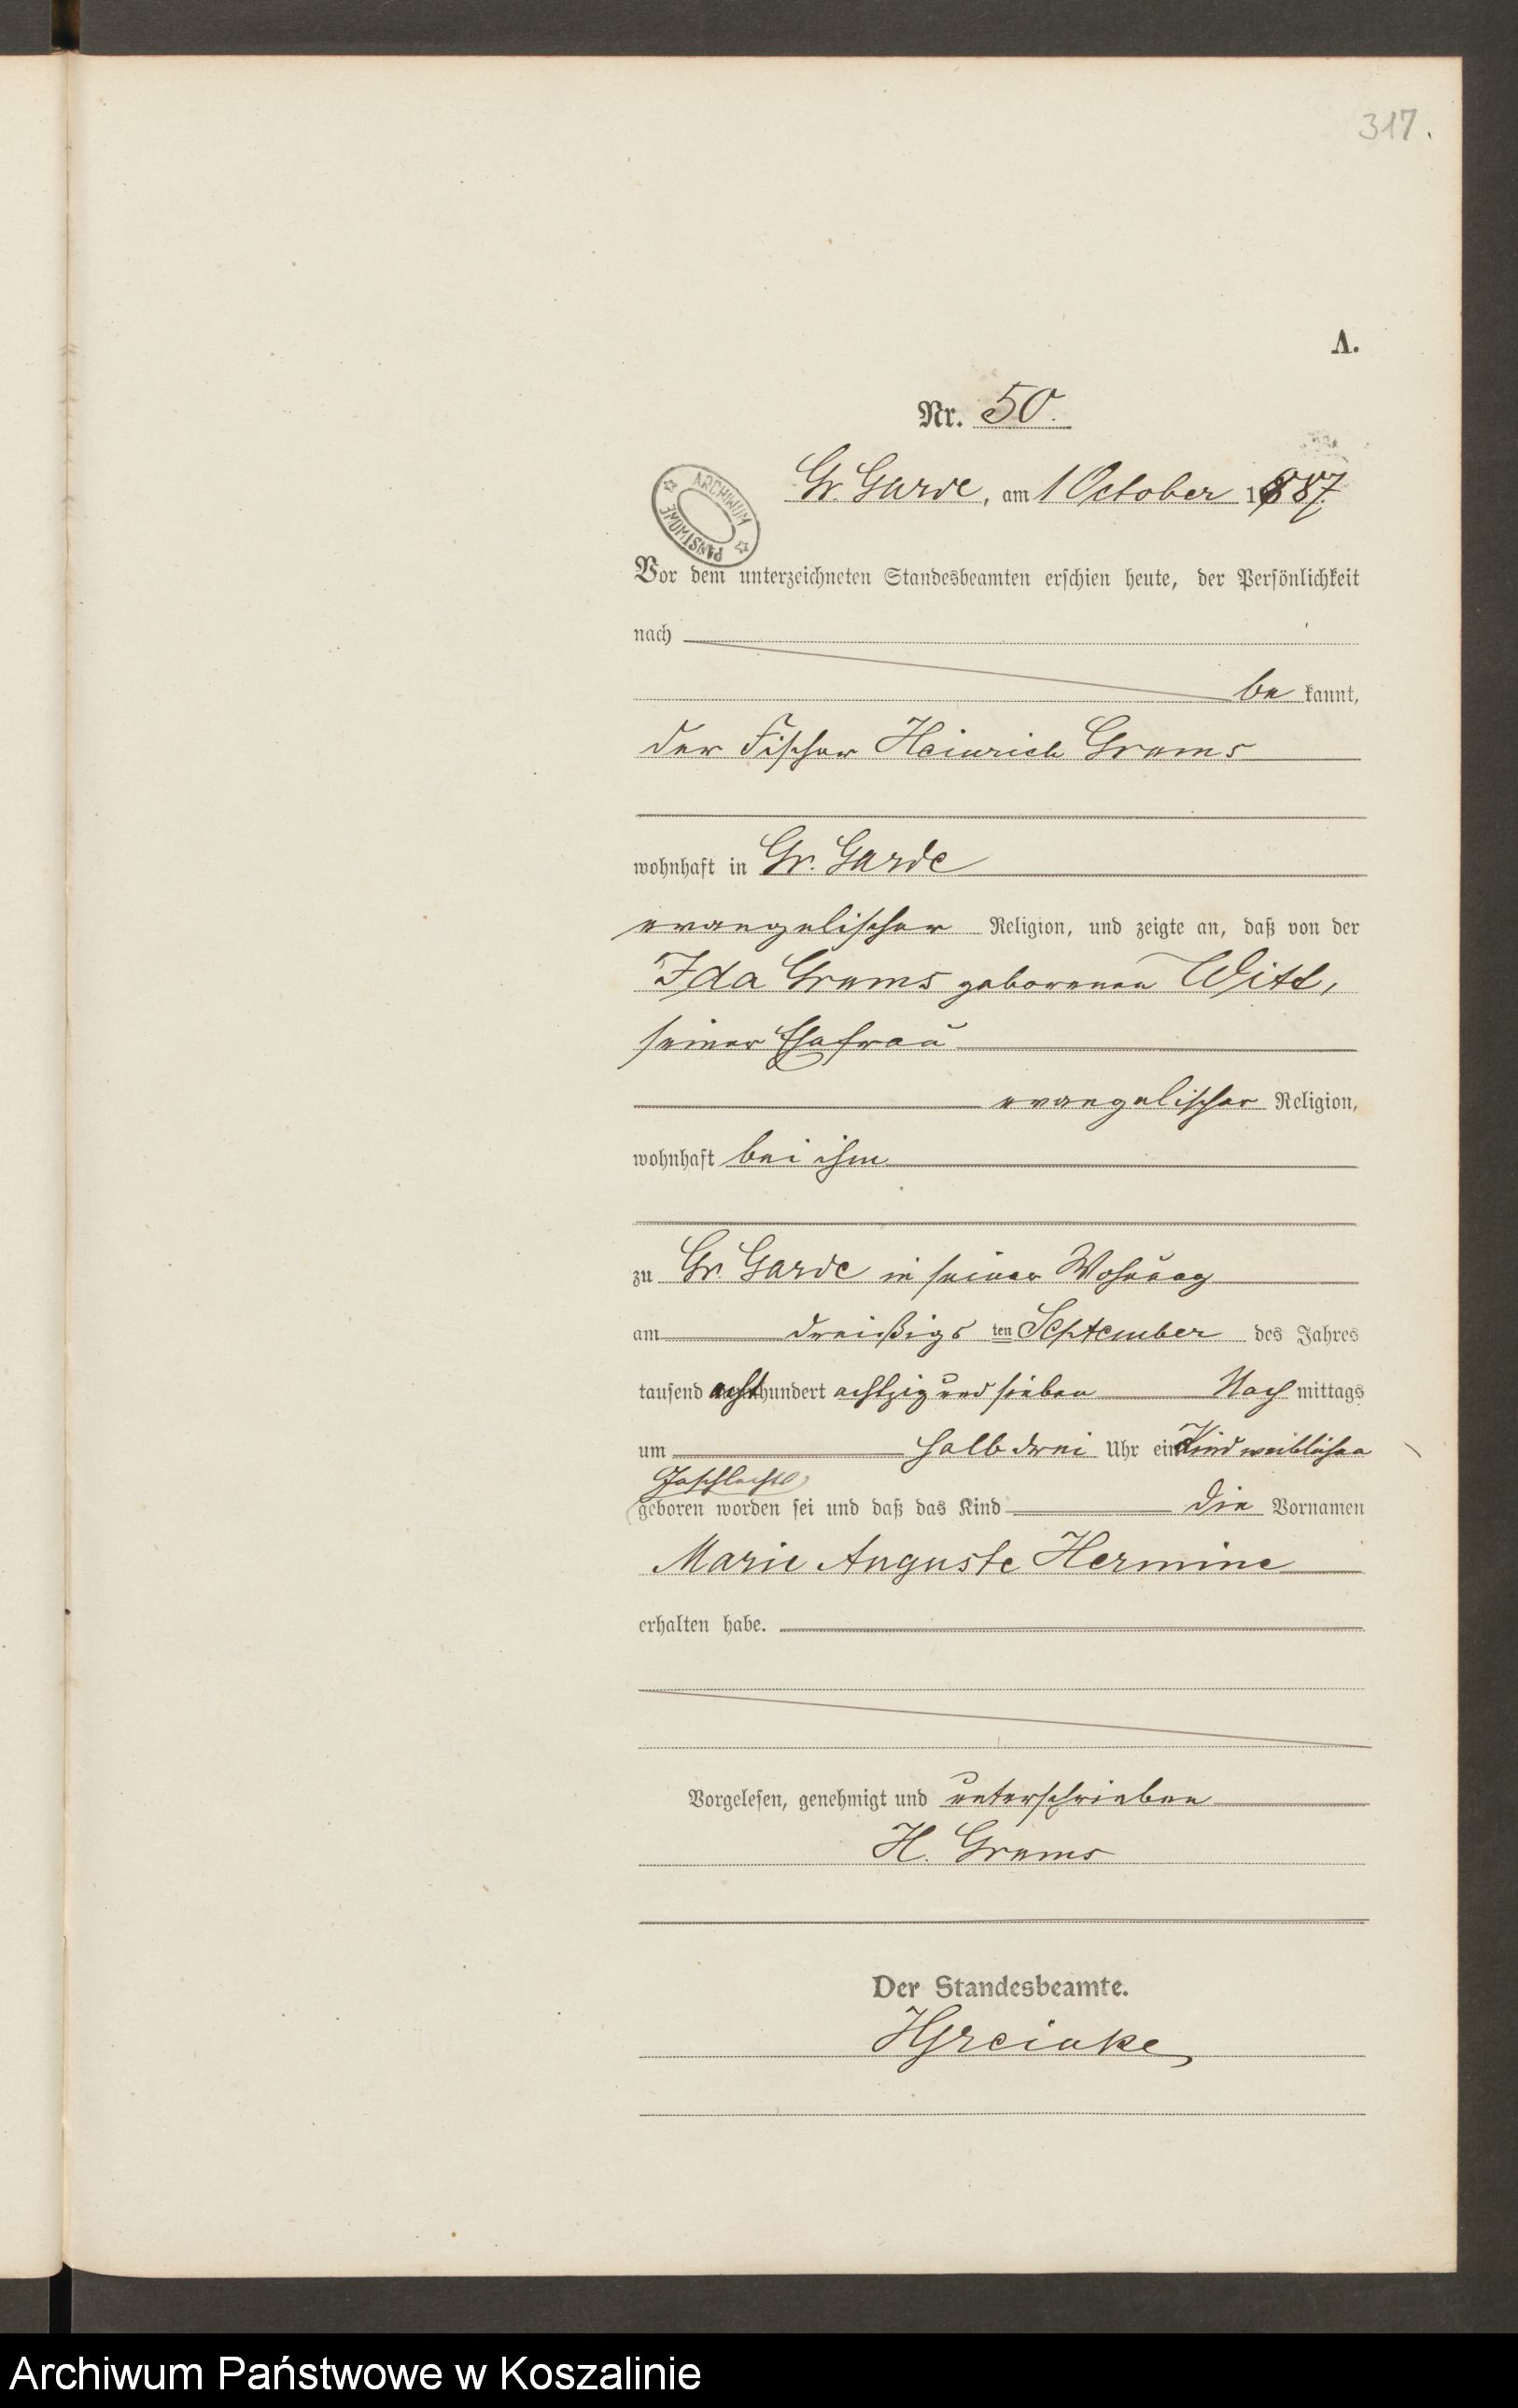 317.
A.
Nr. 50.
Gr. Garde, am 1 October 1887.
ARCHIWUM PAŃSTWOWE
Vor dem unterzeichneten Standesbeamten erschien heute, der Persönlichkeit
nach
be kannt,
der Fischer Heinrich Grams
wohnhaft in Gr. Garde
evangelischer Religion, und zeigte an, daß von der
Ida Grams geborenen Witt,
seiner Ehefrau
evangelischer Religion,
wohnhaft bei ihm
zu Gr. Garde in seiner Wohnung
am dreißigs ten September des Jahres
tausend acht hundert achtzig und sieben Nach mittags
um halb drei Uhr ein Kind weiblichen
Geschlechts
geboren worden sei und daß das Kind die Vornamen
Marie Auguste Hermine
erhalten habe.
Vorgelesen, genehmigt und unterschrieben
H. Grams
Der Standesbeamte.
Archiwum Państwowe w Koszalinie